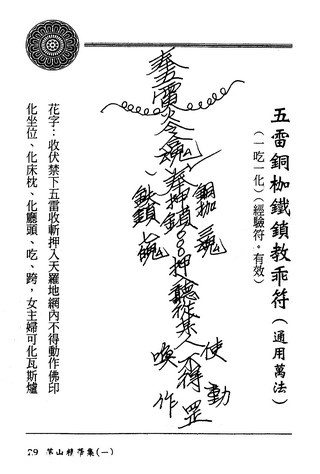 五雷銅枷鐵鎖教乖符(通用萬法)
(一吃一化)(經驗符。有效)
奉五雷火令
奉押鎖
銅枷三魂
鉄鎖七魄
押入聽從某人不得
使動
喚作
罡
花字:收伏禁下五雷收斬押入天羅地網內不得動作佛印
化坐位、化床枕、化廳頭、吃、跨,女主婦可化瓦斯爐
茅山雜學集(一)